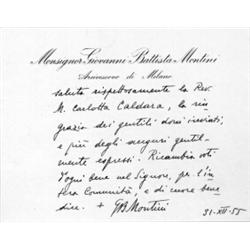 Monsignor Giovanni Battista Montini
Arcivescovo di Milano
saluta rispettosamente la Rev.
M. Carlotta Caldara, la rin-
grazia dei gentili doni inviati,
e più degli auguri gentil-
mente espressi. Ricambia voti
d'ogni bene nel Signore, per l'in-
tera Comunità, e di cuore bene-
dice. + GBMontini
31-XII-55